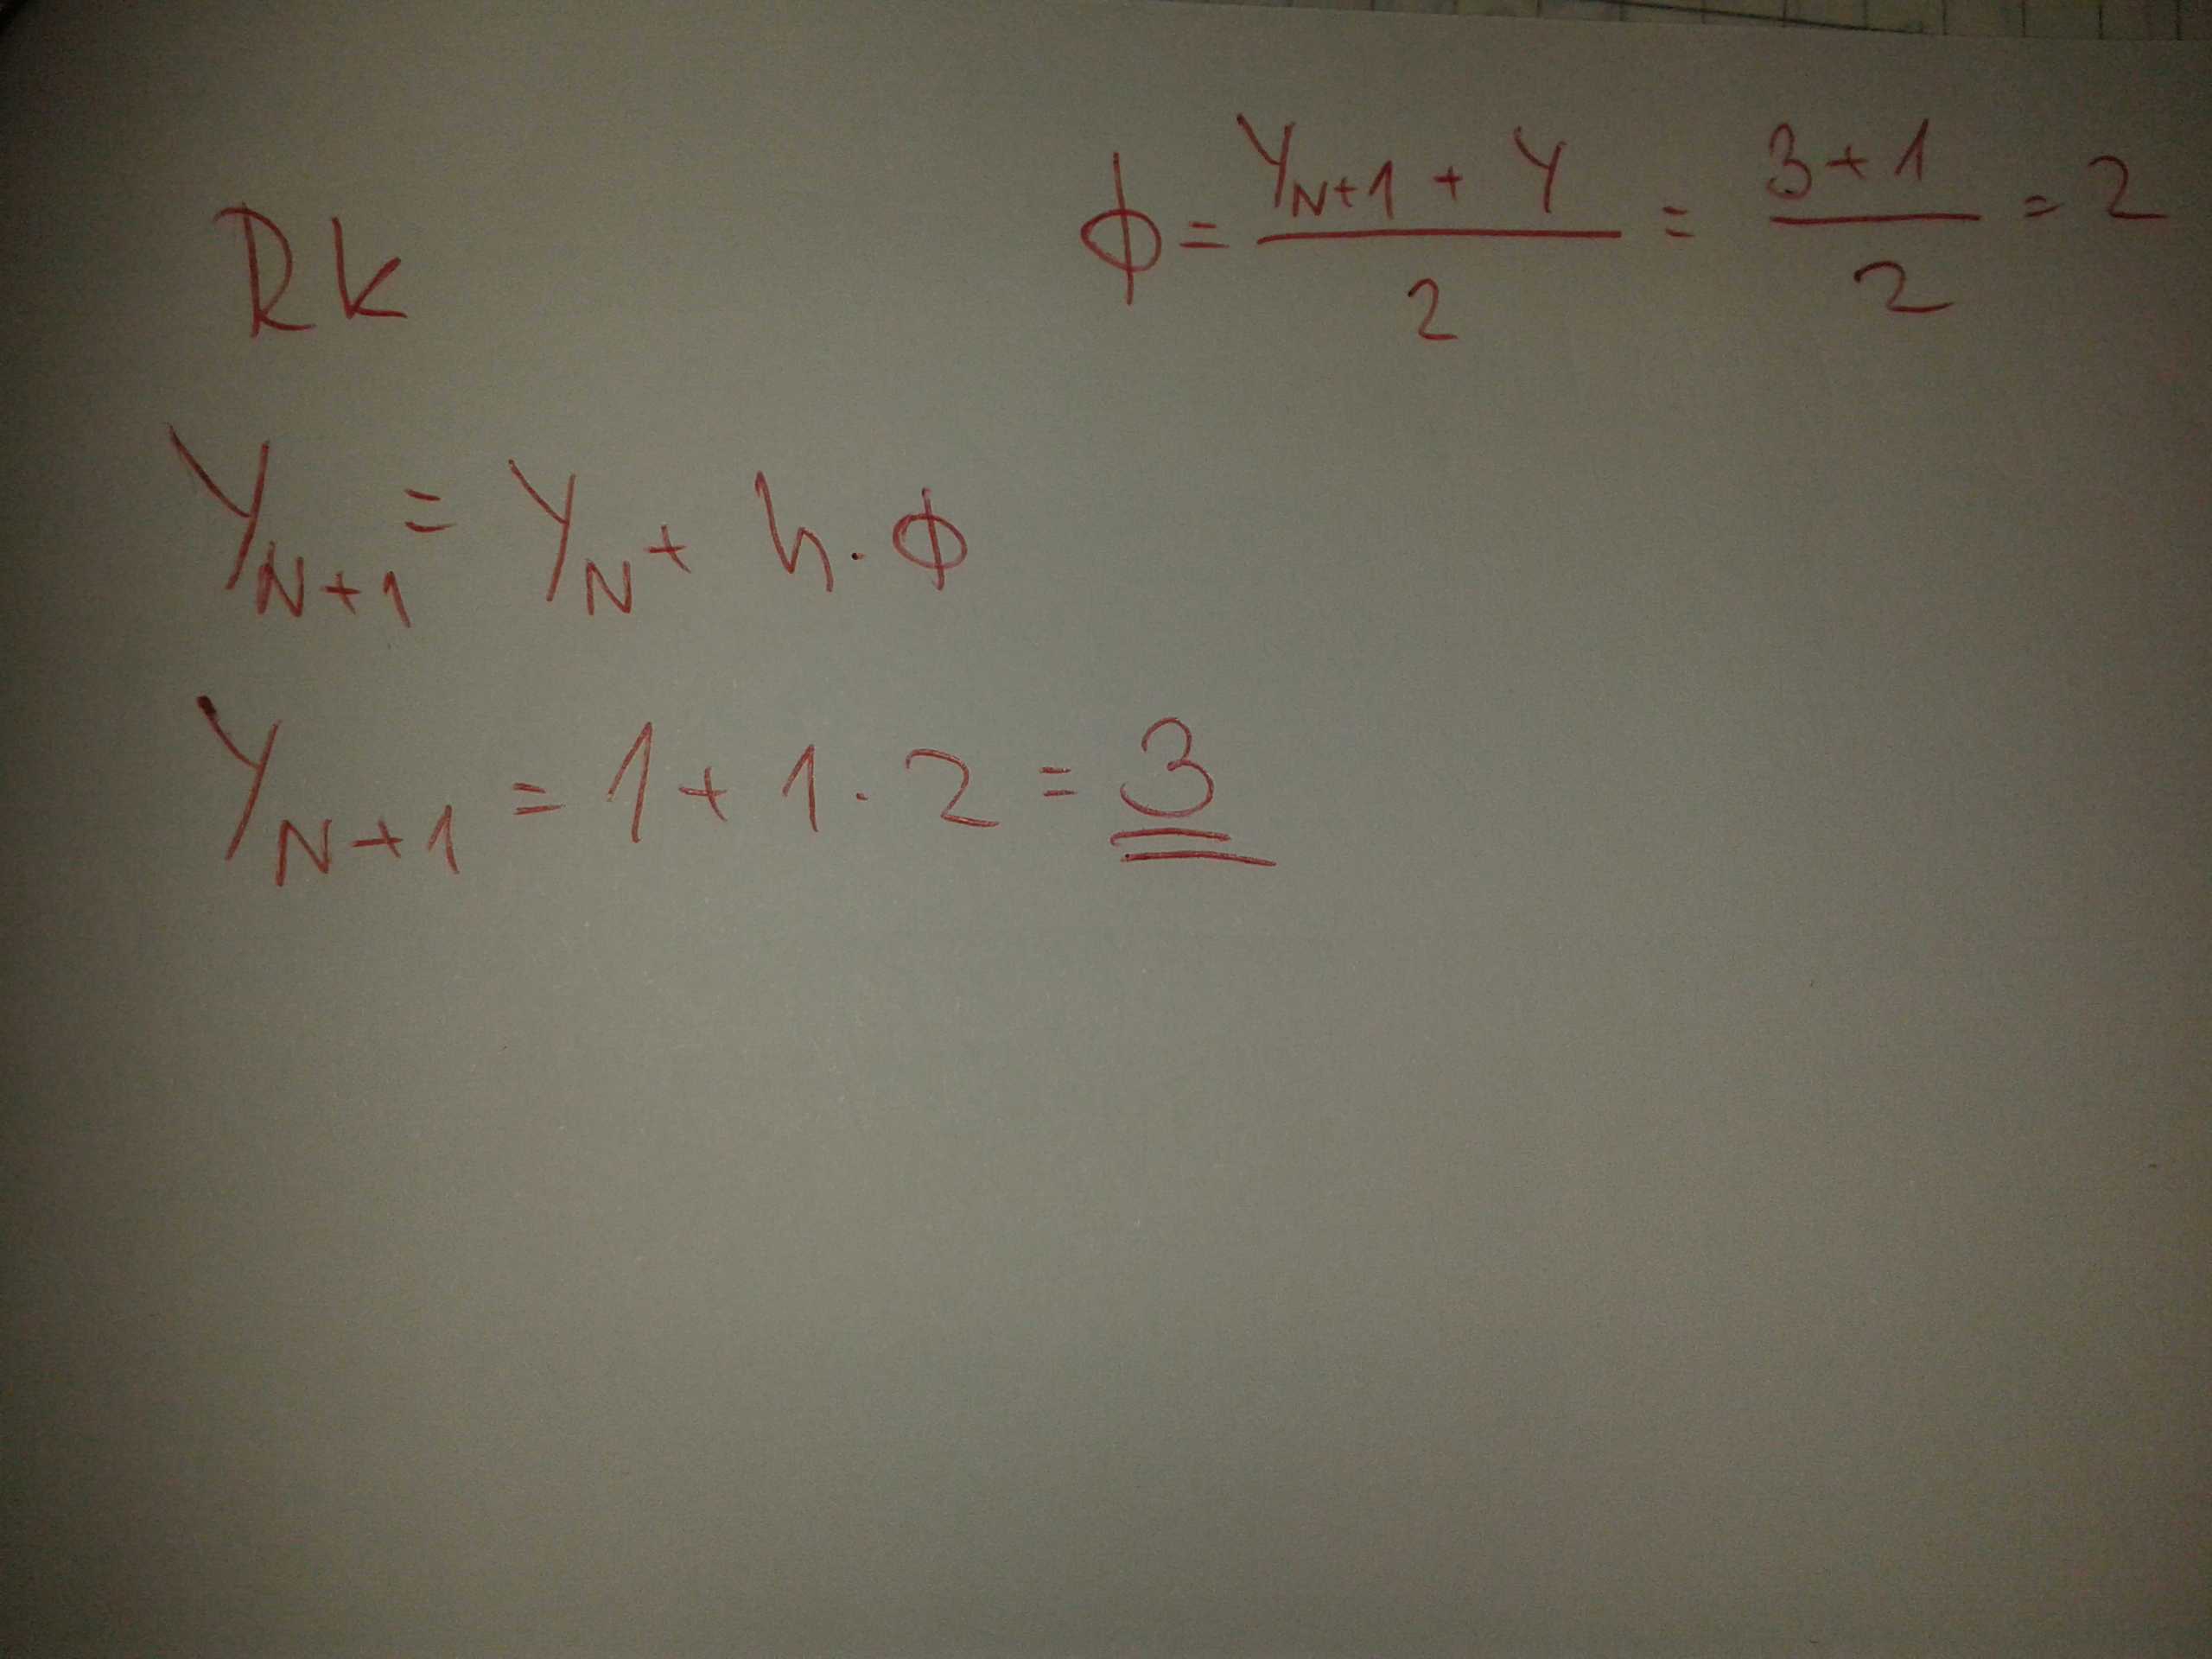 ϕ = (Y_N+1 + Y)/2 = (3+1)/2 = 2
RK
Y_N+1 = Y_N + h·ϕ
Y_N+1 = 1 + 1·2 = 3